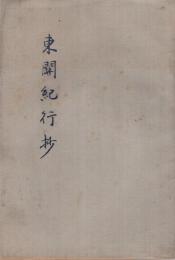 東關紀行抄